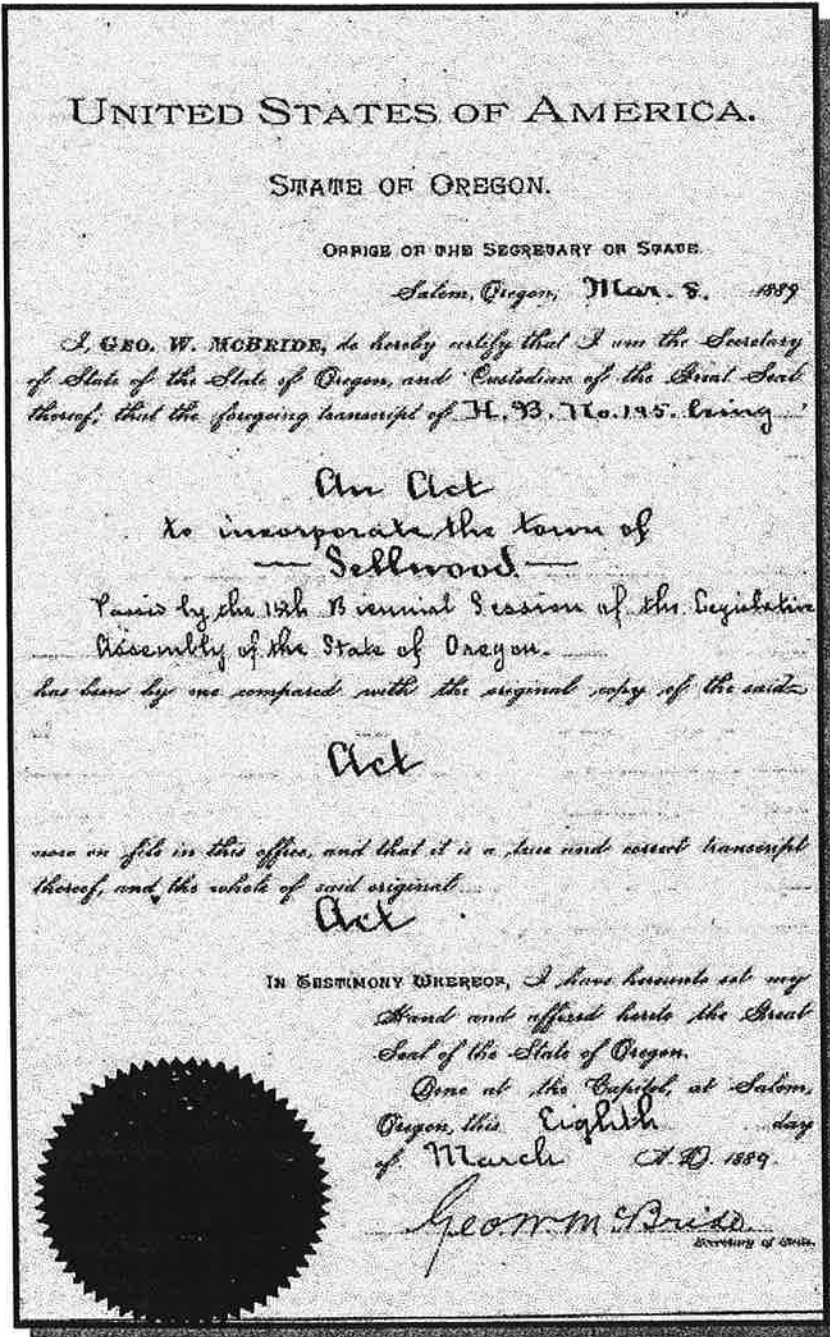 UNITED STATES OF AMERICA.
STATE OF OREGON.
OFFICE OF THE SECRETARY OF STATE.
Salem, Oregon, Mar. 8. 1889
I, GEO. W. McBRIDE, do hereby certify that I am the Secretary
of State of the State of Oregon, and Custodian of the Great Seal
thereof; that the foregoing transcript of H. B. No. 195. being
An Act
to incorporate the town of
— Sellwood —
Passed by the 15th Biennial Session of the Legislative
Assembly of the State of Oregon.
has been by me compared with the original copy of the said
Act
now on file in this office, and that it is a true and correct transcript
thereof, and the whole of said original
Act
IN TESTIMONY WHEREOF, I have hereunto set my
Hand and affixed hereto the Great
Seal of the State of Oregon.
Done at the Capitol, at Salem,
Oregon, this Eighth day
of March A. D. 1889.
Geo. W. McBride
Secretary of State.